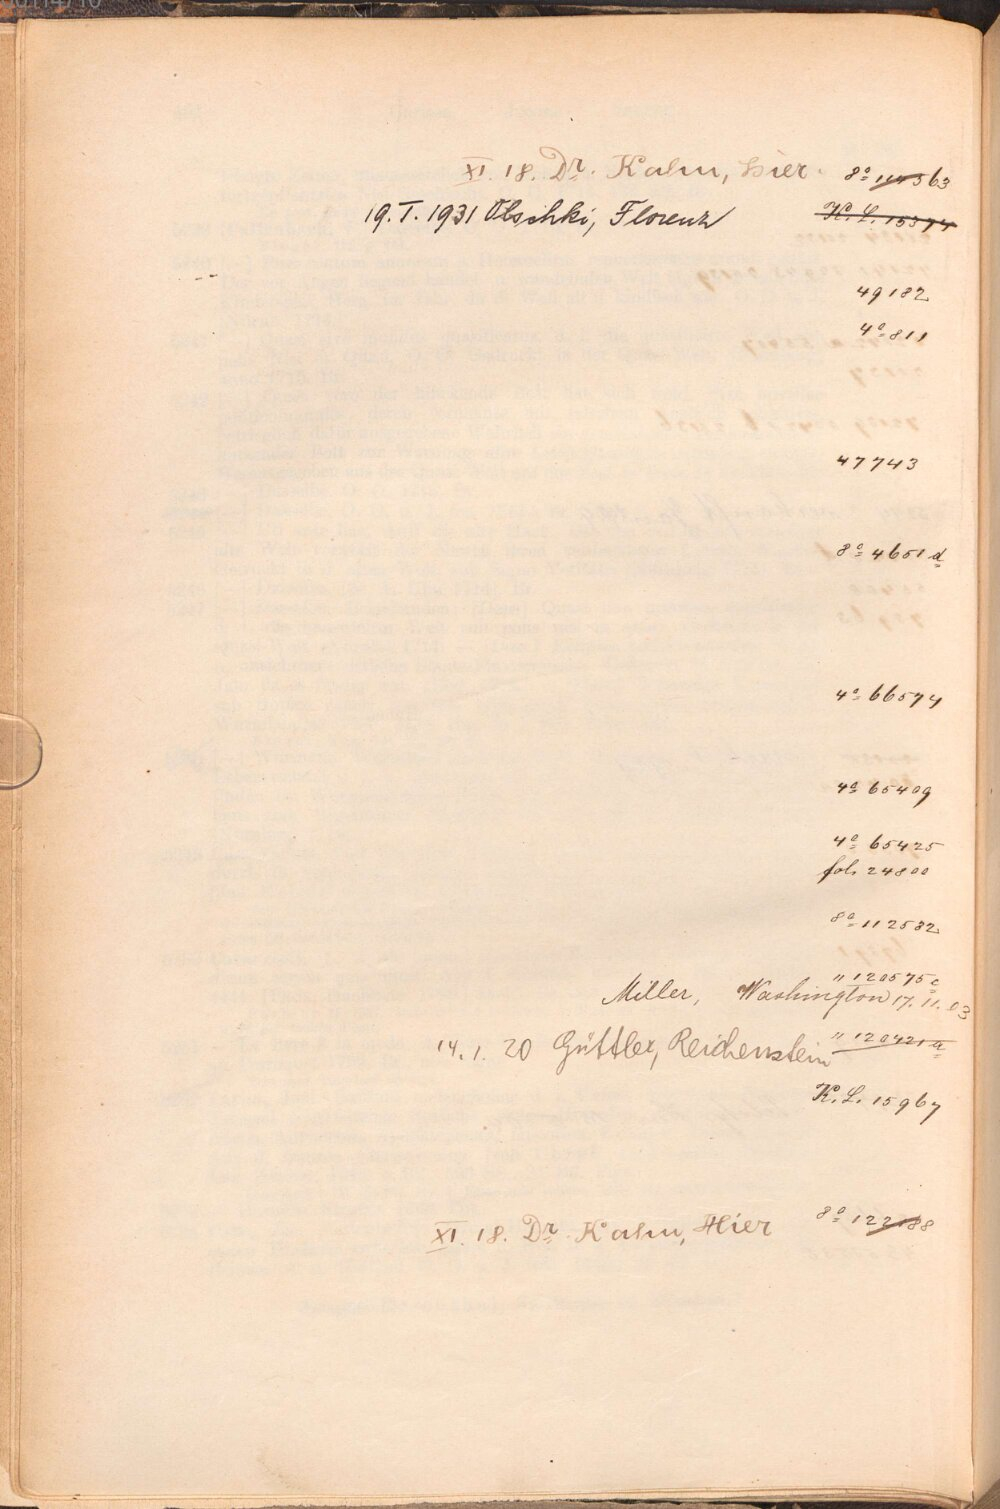 XI. 18. Dr. Kahn, Hier. 8° 114563
19. I. 1931 Olschki, Florenz K. L. 15374
49182
4° 811
47743
8° 4651 d
4° 66574
4° 65409
4° 65425
fol. 24800
8° 112532
" 120575 c
Miller, Washington 17. 11. 03
14. 1. 20 Güttler, Reichenstein " 120421 a
K. L. 15967
XI. 18. Dr. Kahn, Hier 8° 122188